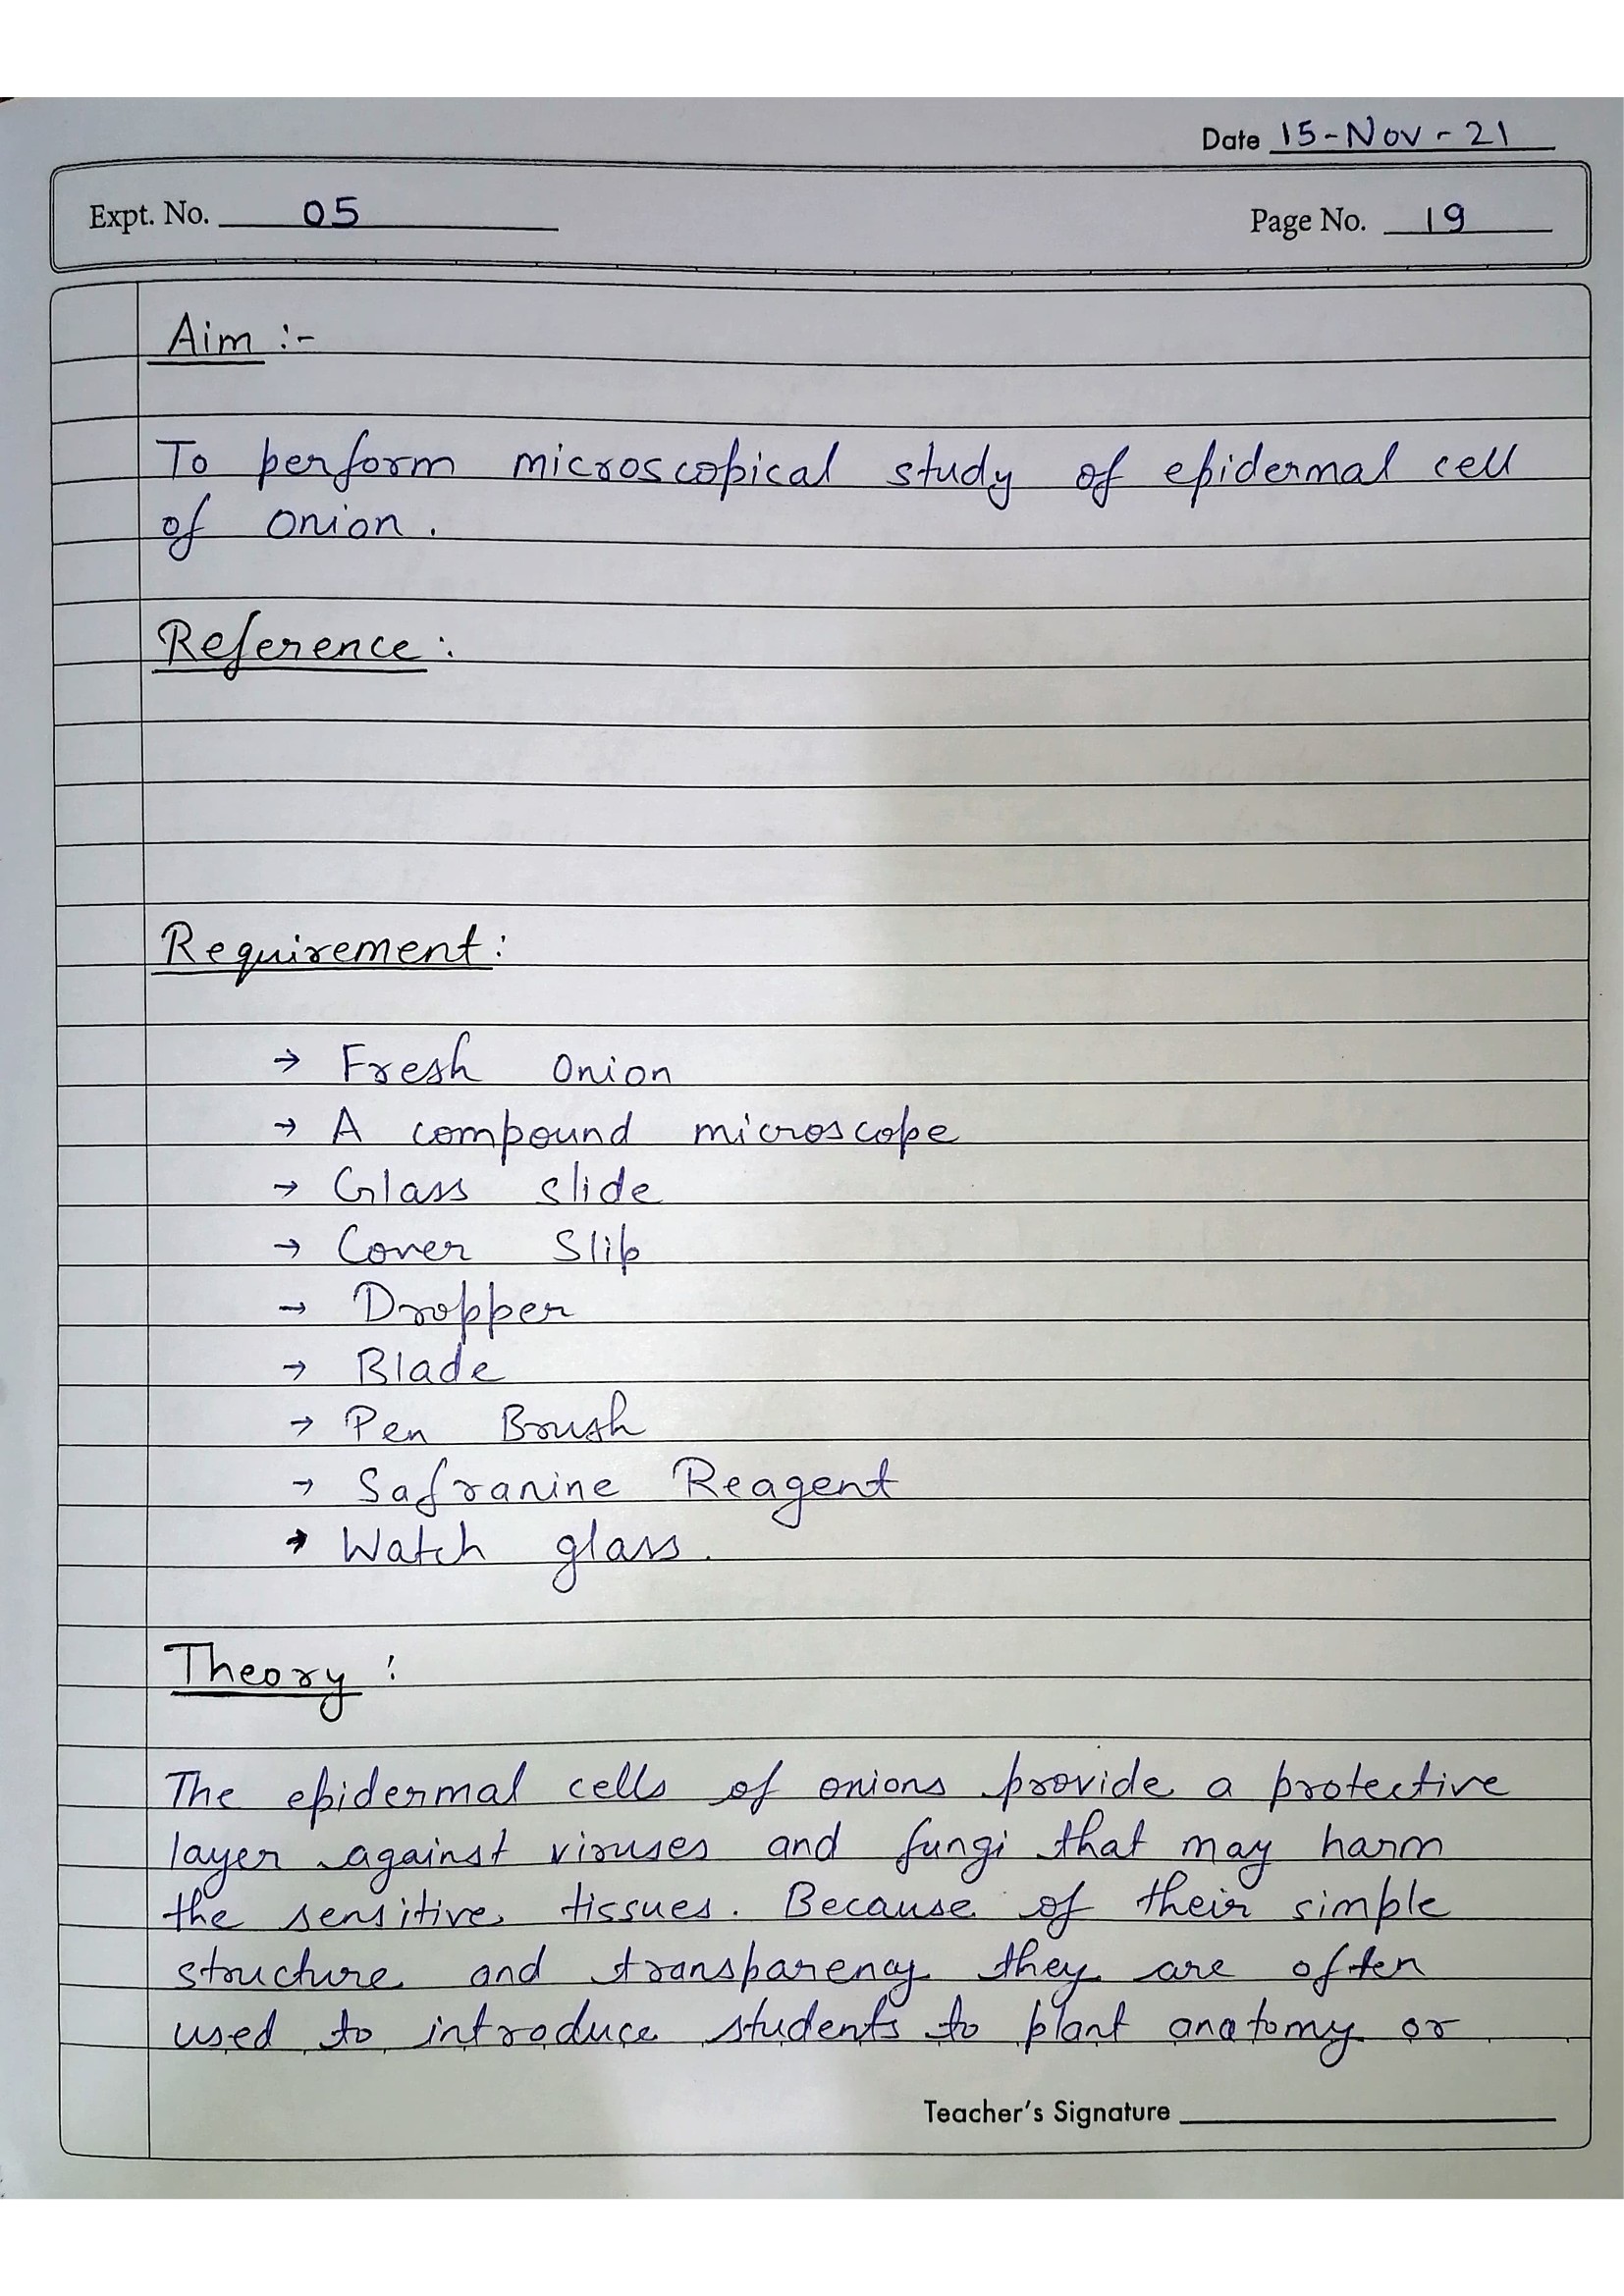 Date 15-Nov-21
Expt. No. 05
Page No. 19
Aim :-
To perform microscopical study of epidermal cell
of onion.
Reference :
Requirement :
→ Fresh onion
→ A compound microscope
→ Glass slide
→ Cover Slip
→ Dropper
→ Blade
→ Pen Brush
→ Safranine Reagent
→ Watch glass.
Theory :
The epidermal cells of onions provide a protective
layer against viruses and fungi that may harm
the sensitive tissues. Because of their simple
structure and transparency they are often
used to introduce students to plant anatomy or
Teacher's Signature